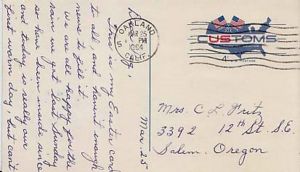 Mar 25
This is my Easter card
to all, and haven't enough
news to fill it.
We are all happy for the
rain we got last Sunday
so have been inside since
and today is really our
first warm day, but can't
OAKLAND
5
MAR 25
PM
1964
CALIF.
CUSTOMS
4
Mrs. C L Fritz
3392 12th St. S.E.
Salem, Oregon